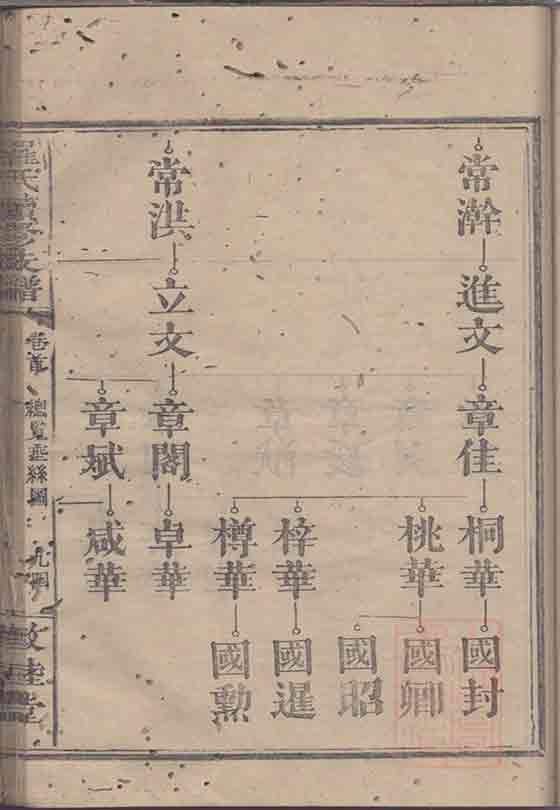 常澣
進文
章佳
桐華
國封
桃華
國卿
國昭
梓華
國暹
樽華
國勲
常洪
立文
章閣
卓華
章斌
咸華
羅氏續修支譜
卷首
總覽垂絲圖
敦睦堂